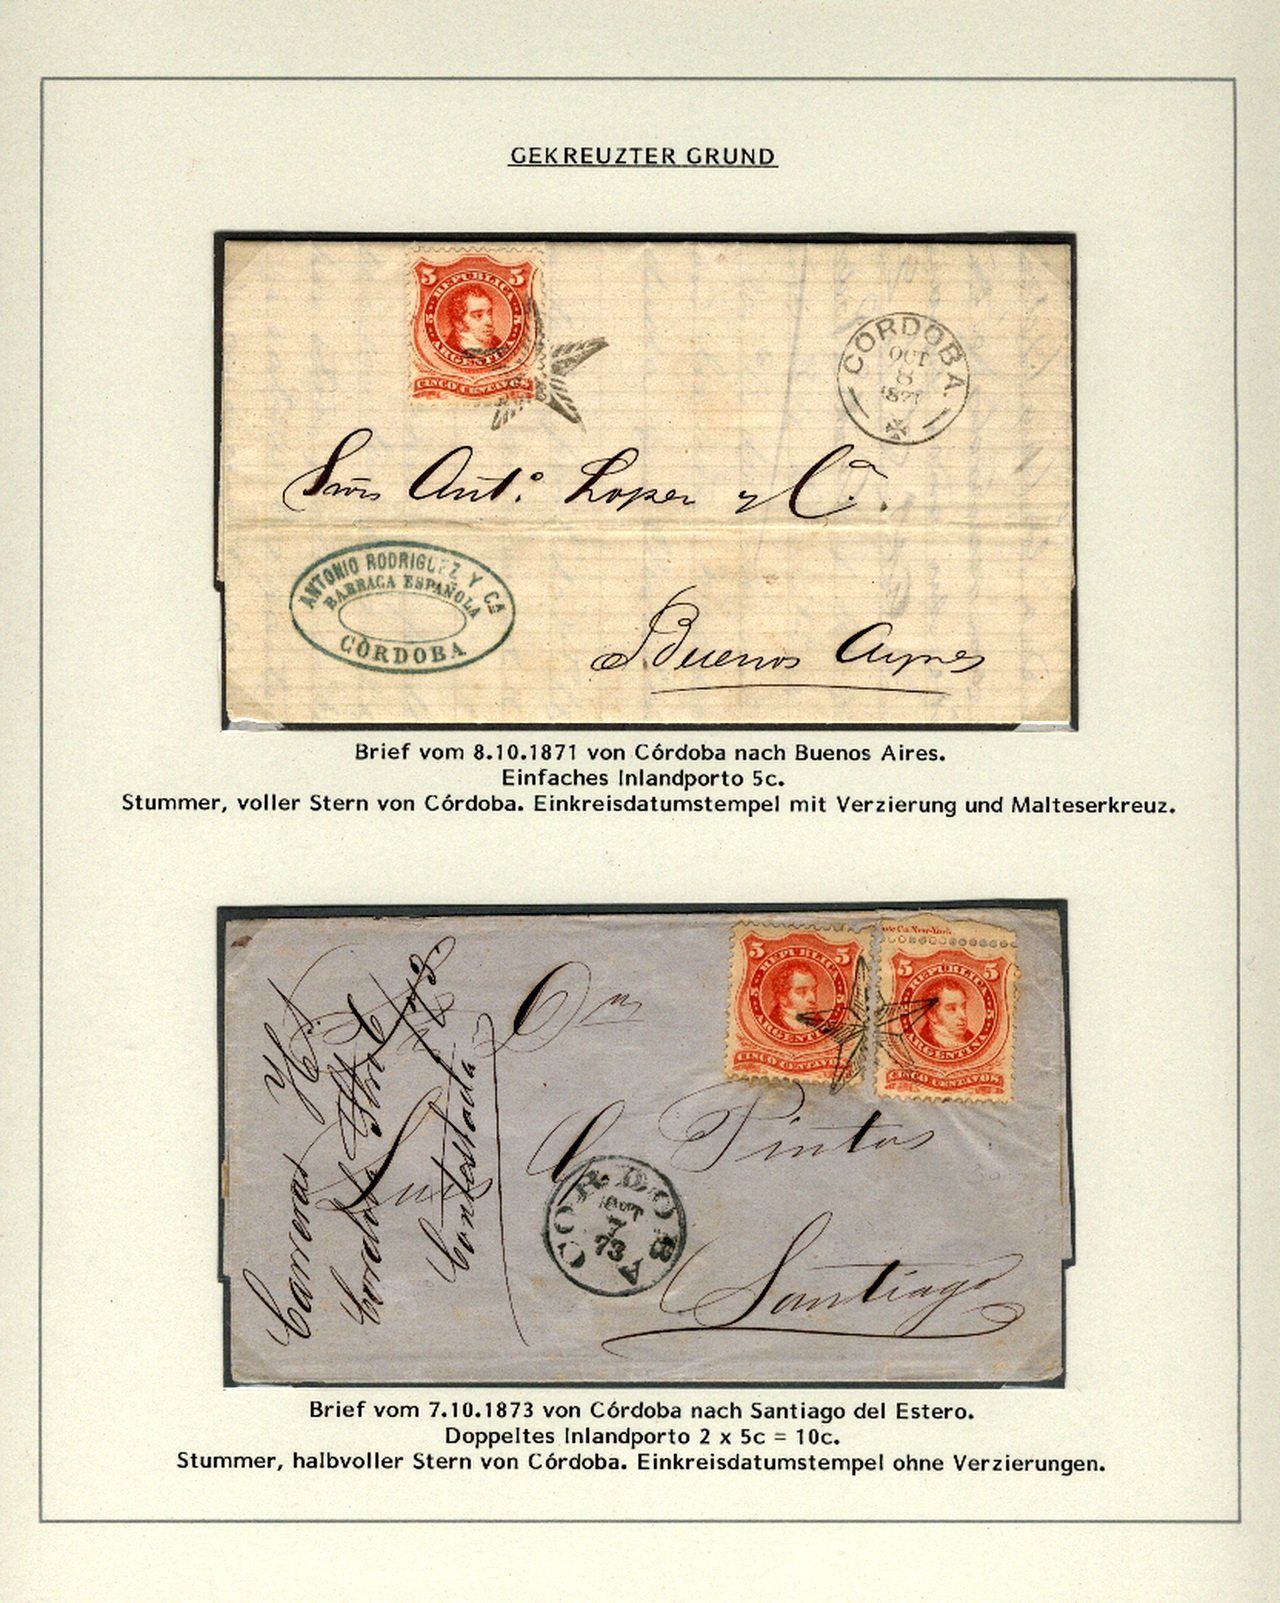 GEKREUZTER GRUND
5 5
REPUBLICA
5 5
ARGENTINA
CINCO CENTAVOS
CORDOBA.
OCT
8
1871
Ant.º Lopez y Cª.
ANTONIO RODRIGUEZ Y Cª
BARRACA ESPAÑOLA
CÓRDOBA
Buenos Ayres
Brief vom 8.10.1871 von Córdoba nach Buenos Aires.
Einfaches Inlandporto 5c.
Stummer, voller Stern von Córdoba. Einkreisdatumstempel mit Verzierung und Malteserkreuz.
Co. New-York.
5 5
REPUBLICA
5 5
ARGENTINA
CINCO CENTAVOS
5 5
REPUBLICA
5 5
ARGENTINA
CINCO CENTAVOS
Dn
Pintos
Carreras
Cordoba
Contestada
CORDOBA
OCT
7
73
Santiago
Brief vom 7.10.1873 von Córdoba nach Santiago del Estero.
Doppeltes Inlandporto 2 x 5c = 10c.
Stummer, halbvoller Stern von Córdoba. Einkreisdatumstempel ohne Verzierungen.